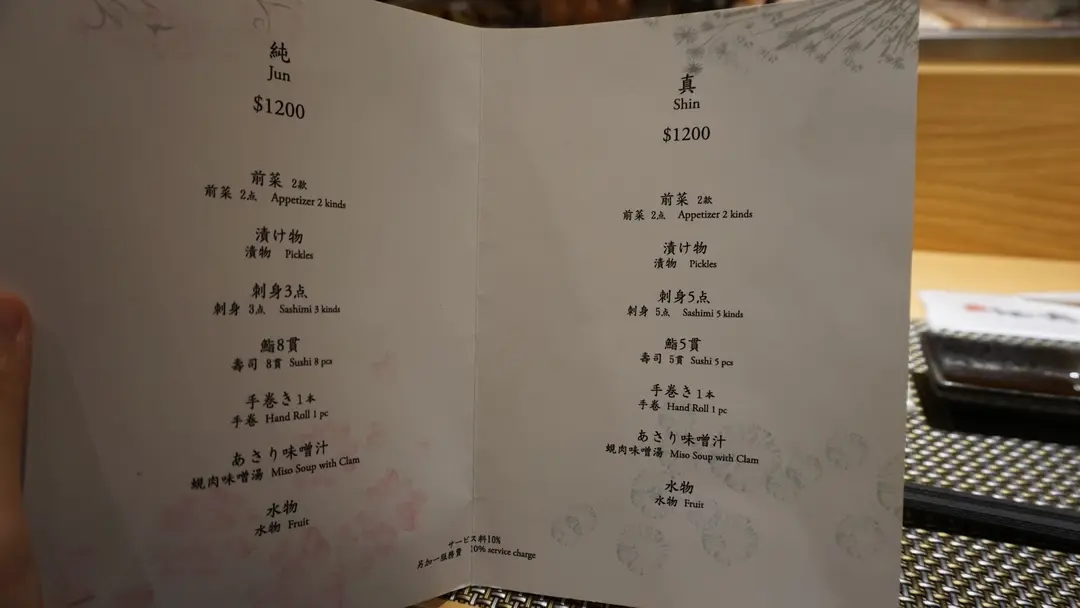 純
Jun
$1200
前菜 2款
前菜 2点 Appetizer 2 kinds
漬け物
漬物 Pickles
刺身3点
刺身 3点 Sashimi 3 kinds
鮨8貫
壽司 8貫 Sushi 8 pcs
手巻き1本
手卷 Hand Roll 1 pc
あさり味噌汁
蜆肉味噌湯 Miso Soup with Clam
水物
水物 Fruit
真
Shin
$1200
前菜 2款
前菜 2点 Appetizer 2 kinds
漬け物
漬物 Pickles
刺身5点
刺身 5点 Sashimi 5 kinds
鮨5貫
壽司 5貫 Sushi 5 pcs
手巻き1本
手卷 Hand Roll 1 pc
あさり味噌汁
蜆肉味噌湯 Miso Soup with Clam
水物
水物 Fruit
サービス料10%
另加一服務費 10% service charge